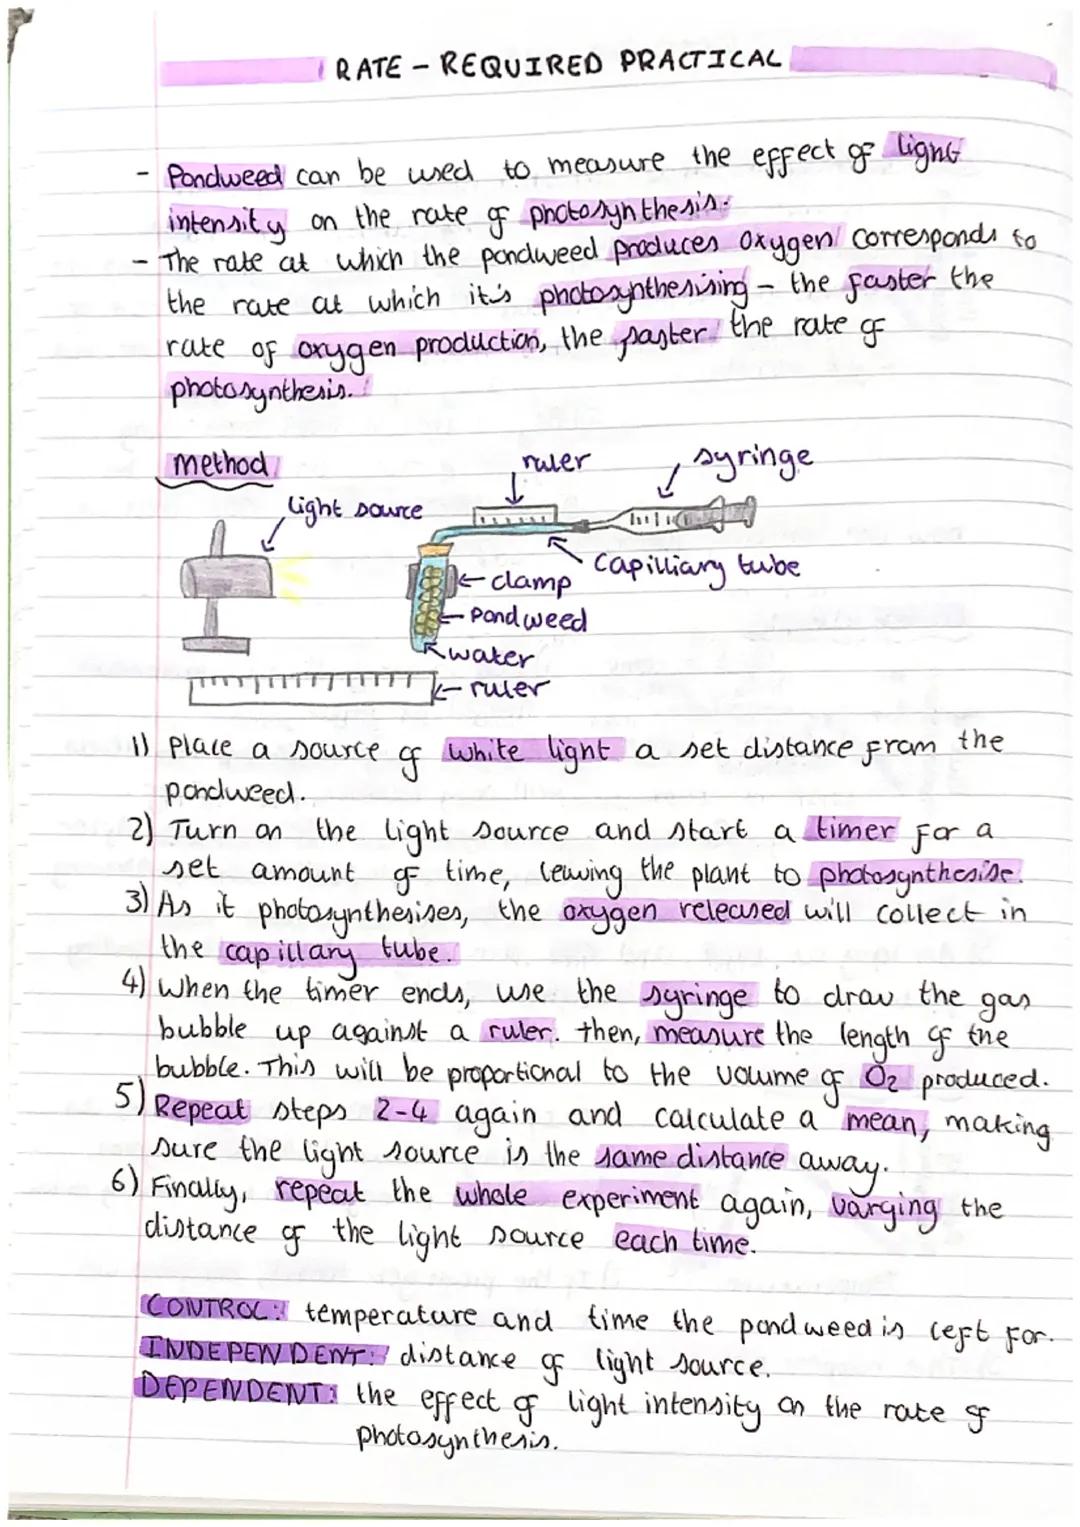 RATE - REQUIRED PRACTICAL
- Pondweed can be used to measure the effect of light
intensity on the rate of photosynthesis.
- The rate at which the pondweed produces oxygen corresponds to
the rate at which it's photosynthesising - the faster the
rate of oxygen production, the faster the rate of
photosynthesis.
method
light source
ruler
syringe
capilliary tube
clamp
Pondweed
water
ruler
1) Place a source of white light a set distance from the
pondweed.
2) Turn on the light source and start a timer for a
set amount of time, leaving the plant to photosynthesise.
3) As it photosynthesises, the oxygen released will collect in
the capillary tube.
4) When the timer ends, use the syringe to draw the gas
bubble up against a ruler. Then, measure the length of the
bubble. This will be proportional to the volume of O2 produced.
5) Repeat steps 2-4 again and calculate a mean, making
sure the light source is the same distance away.
6) Finally, repeat the whole experiment again, varying the
distance of the light source each time.
CONTROL: temperature and time the pondweed is left for.
INDEPENDENT: distance of light source.
DEPENDENT: the effect of light intensity on the rate of
photosynthesis.